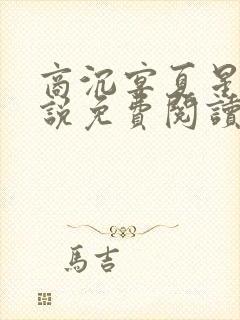 商沉宴夏星
說免費閱讀
馬吉